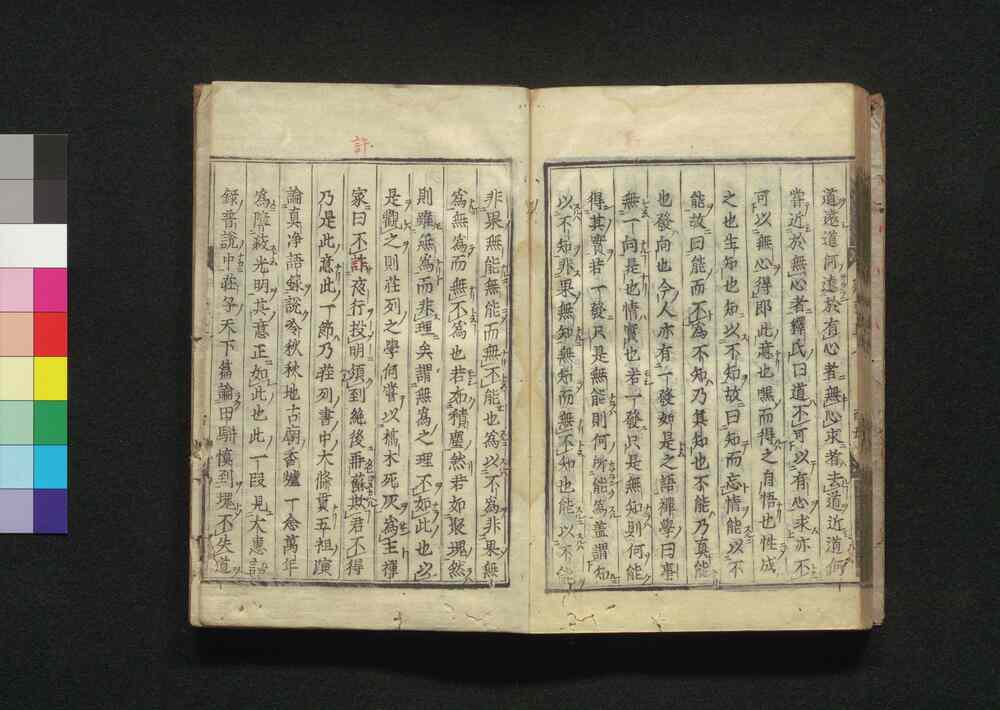 道遠道何遠於有心者無心求者去道近道何
嘗近於無心者釋氏曰道不可以有心求亦不
可以無心得即此意也嘿而得之自悟也性成
之也生知也知以不知故曰知而忘情能以不
能故曰能而不為不知乃真知也不能乃真能
也發向也今人亦有一發如是之語禪學曰事
無一向是也情實也若一發只是無知則何能
得其實若一發只是無能則何所能為蓋謂知
以不知非果無知無知而無不知也能以不能
非果無能無能而無不能也為以不為非果無
為無為而無不為也若如積塵然若如聚塊然
則雖無為而非理矣謂無為之理不如此也以
是觀之則莊列之學何嘗以槁木死灰為主禪
家曰不許夜行投明須到絶後再蘇欺君不得
乃是此意此一節乃莊列書中大條貫五祖演
論真净語録說秋秋地古廟香爐一念萬年
為障蔽光明其意正如此也此一段見大惠語
錄普說中莊子天下篇論田駢慎到塊不失道
許